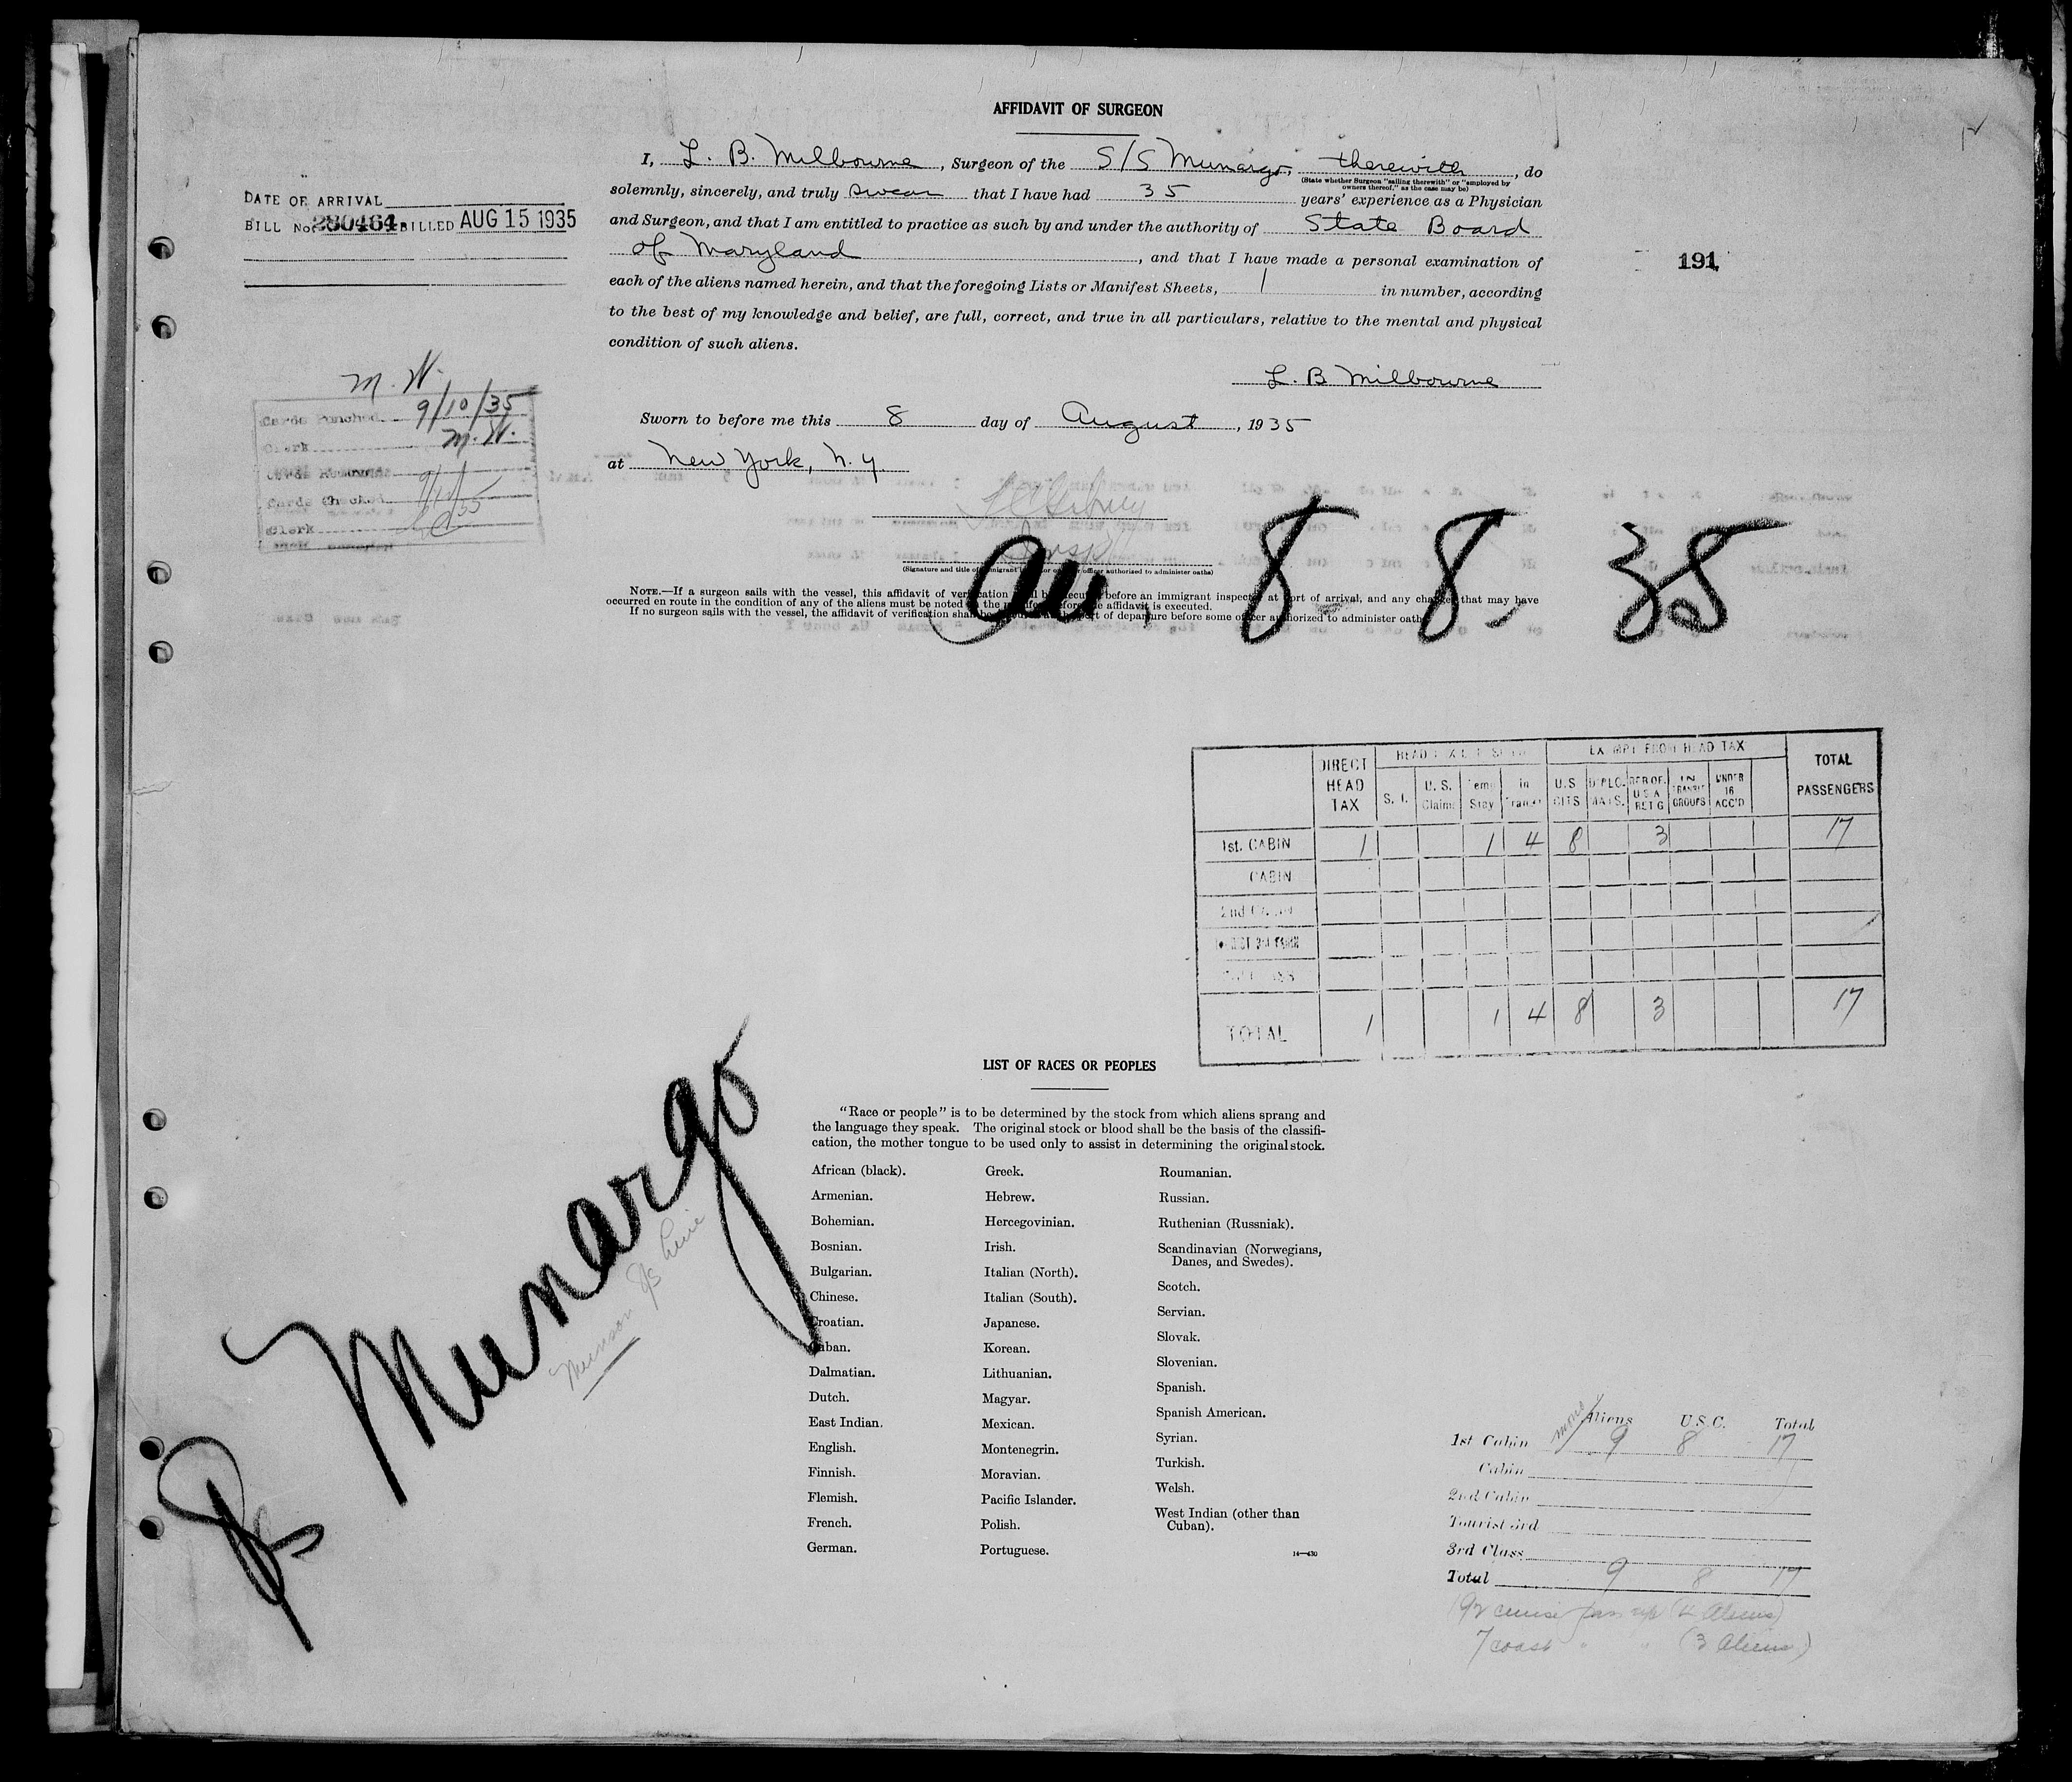 AFFIDAVIT OF SURGEON
I, L. B. Milbourne, Surgeon of the S/S Munargo, therewith, do
(State whether Surgeon "sailing therewith" or "employed by
owners thereof," as the case may be)
solemnly, sincerely, and truly swear that I have had 35 years' experience as a Physician
and Surgeon, and that I am entitled to practice as such by and under the authority of State Board
of Maryland, and that I have made a personal examination of
each of the aliens named herein, and that the foregoing Lists or Manifest Sheets, 1 in number, according
to the best of my knowledge and belief, are full, correct, and true in all particulars, relative to the mental and physical
condition of such aliens.
L. B Milbourne
Sworn to before me this 8 day of August, 1935
at New York, N.Y.
(Signature and title of immigrant or officer authorized to administer oaths)
NOTE.—If a surgeon sails with the vessel, this affidavit of verification before an immigrant inspector at port of arrival, and any changes that may have
occurred en route in the condition of any of the aliens must be noted the before the affidavit is executed.
If no surgeon sails with the vessel, the affidavit of verification shall be of departure before some officer authorized to administer oath
DATE OF ARRIVAL
BILL No. 280464 BILLED AUG 15 1935
191
M. W.
Cards Punched 9/10/35
Clerk M. W.
Cards Checked
Clerk
8 8, 35
DIRECT HEAD TAX
HEAD TAX
EXEMPT FROM HEAD TAX
TOTAL PASSENGERS
S. I. U. S. Claims Temp Stay In Transit U.S CITS DIPLOMATS. RER OF U.S.A RET'G IN TRANSIT GROUPS UNDER 16 ACC'D
1st. CABIN 1 1 4 8 3 17
CABIN
2nd CABIN
TOTAL 1 1 4 8 3 17
SS Munargo
Munson S/S Line
LIST OF RACES OR PEOPLES
"Race or people" is to be determined by the stock from which aliens sprang and
the language they speak. The original stock or blood shall be the basis of the classifi-
cation, the mother tongue to be used only to assist in determining the original stock.
African (black).
Armenian.
Bohemian.
Bosnian.
Bulgarian.
Chinese.
Croatian.
Cuban.
Dalmatian.
Dutch.
East Indian.
English.
Finnish.
Flemish.
French.
German.
Greek.
Hebrew.
Hercegovinian.
Irish.
Italian (North).
Italian (South).
Japanese.
Korean.
Lithuanian.
Magyar.
Mexican.
Montenegrin.
Moravian.
Pacific Islander.
Polish.
Portuguese.
Roumanian.
Russian.
Ruthenian (Russniak).
Scandinavian (Norwegians,
Danes, and Swedes).
Scotch.
Servian.
Slovak.
Slovenian.
Spanish.
Spanish American.
Syrian.
Turkish.
Welsh.
West Indian (other than
Cuban).
14—430
Aliens U.S.C. Total
1st Cabin 9 8 17
Cabin
2nd Cabin
Tourist 3rd
3rd Class
Total 9 8 17
92 cruise (4 Aliens)
7 coast " " (3 Aliens)